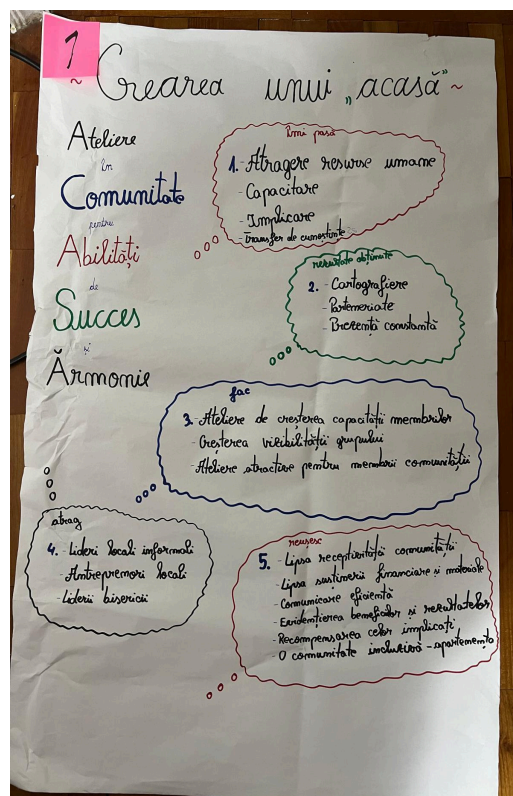 1
~ Crearea unui „acasă” ~
Ateliere
în
Comunitate
pentru
Abilități
de
Succes
și
Ărmonie
îmi pasă
1. Atragere resurse umane
- Capacitare
- Implicare
- Transfer de cunoștințe
rezultate obținute
2. - Cartografiere
- Parteneriate
- Prezență constantă
fac
3. Ateliere de creșterea capacității membrilor
- Creșterea vizibilității grupului
- Ateliere atractive pentru membrii comunității
atrag
4. - Lideri locali informali
- Antreprenori locali
- Liderii bisericii
reușesc
5. - Lipsa receptivității comunității
- Lipsa susținerii financiare și materiale
- Comunicare eficientă
- Evidențierea beneficiilor și rezultatelor
- Recompensarea celor implicați
- O comunitate incluzivă - apartenența